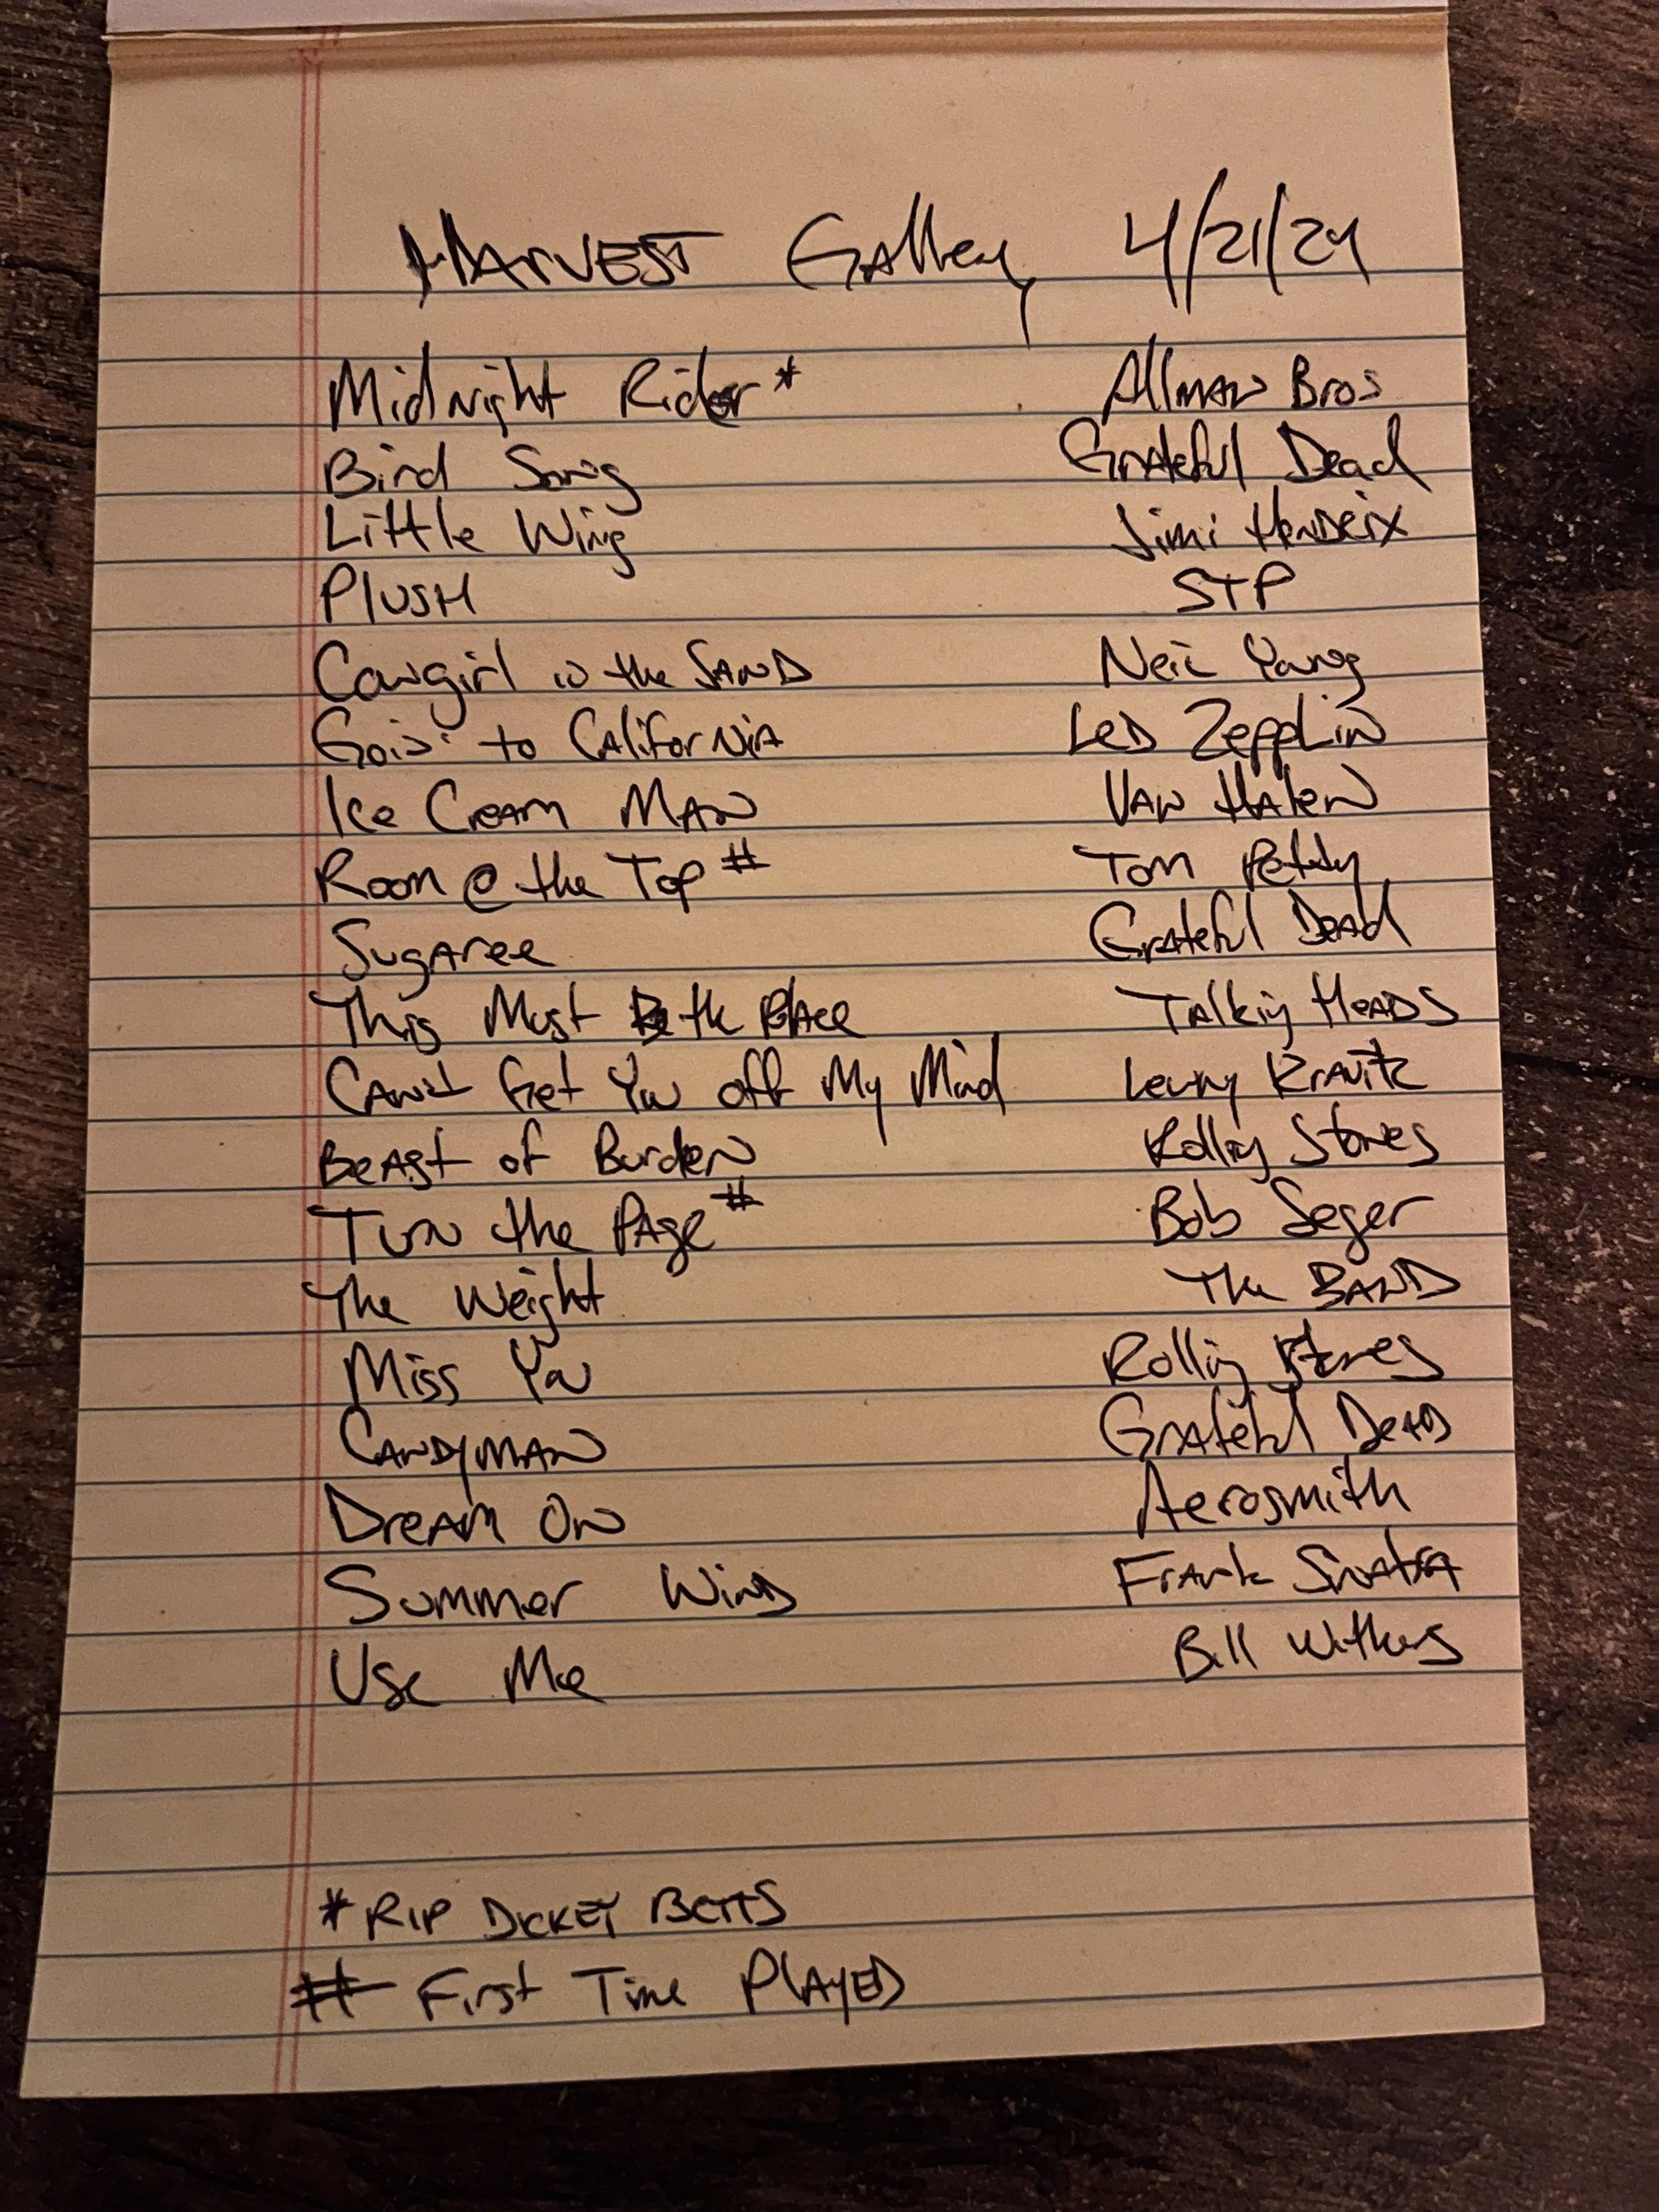 HARVEST Gallery 4/21/24
Midnight Rider* Allman Bros
Bird Song Grateful Dead
Little Wing Jimi Hendrix
PlUSH STP
Cowgirl in the SAND Neil Young
Goin' to CAliforNiA LeD ZeppLin
Ice Cream MAN VAN HAleN
Room @ the Top # Tom Petty
Sugaree Grateful Dead
This Must Be the Place Talking HeADS
CAN't Get You off My Mind Lenny Kravitz
BeAst of BurdeN Rolling Stones
TurN the PAge # Bob Seger
The Weight The BAND
Miss You Rolling Stones
CANDYMAN Grateful DeAD
DreAm ON Aerosmith
Summer WinD Frank Sinatra
Use Me Bill Withers
* RIP DICKEY BETTS
# First Time PlAYED